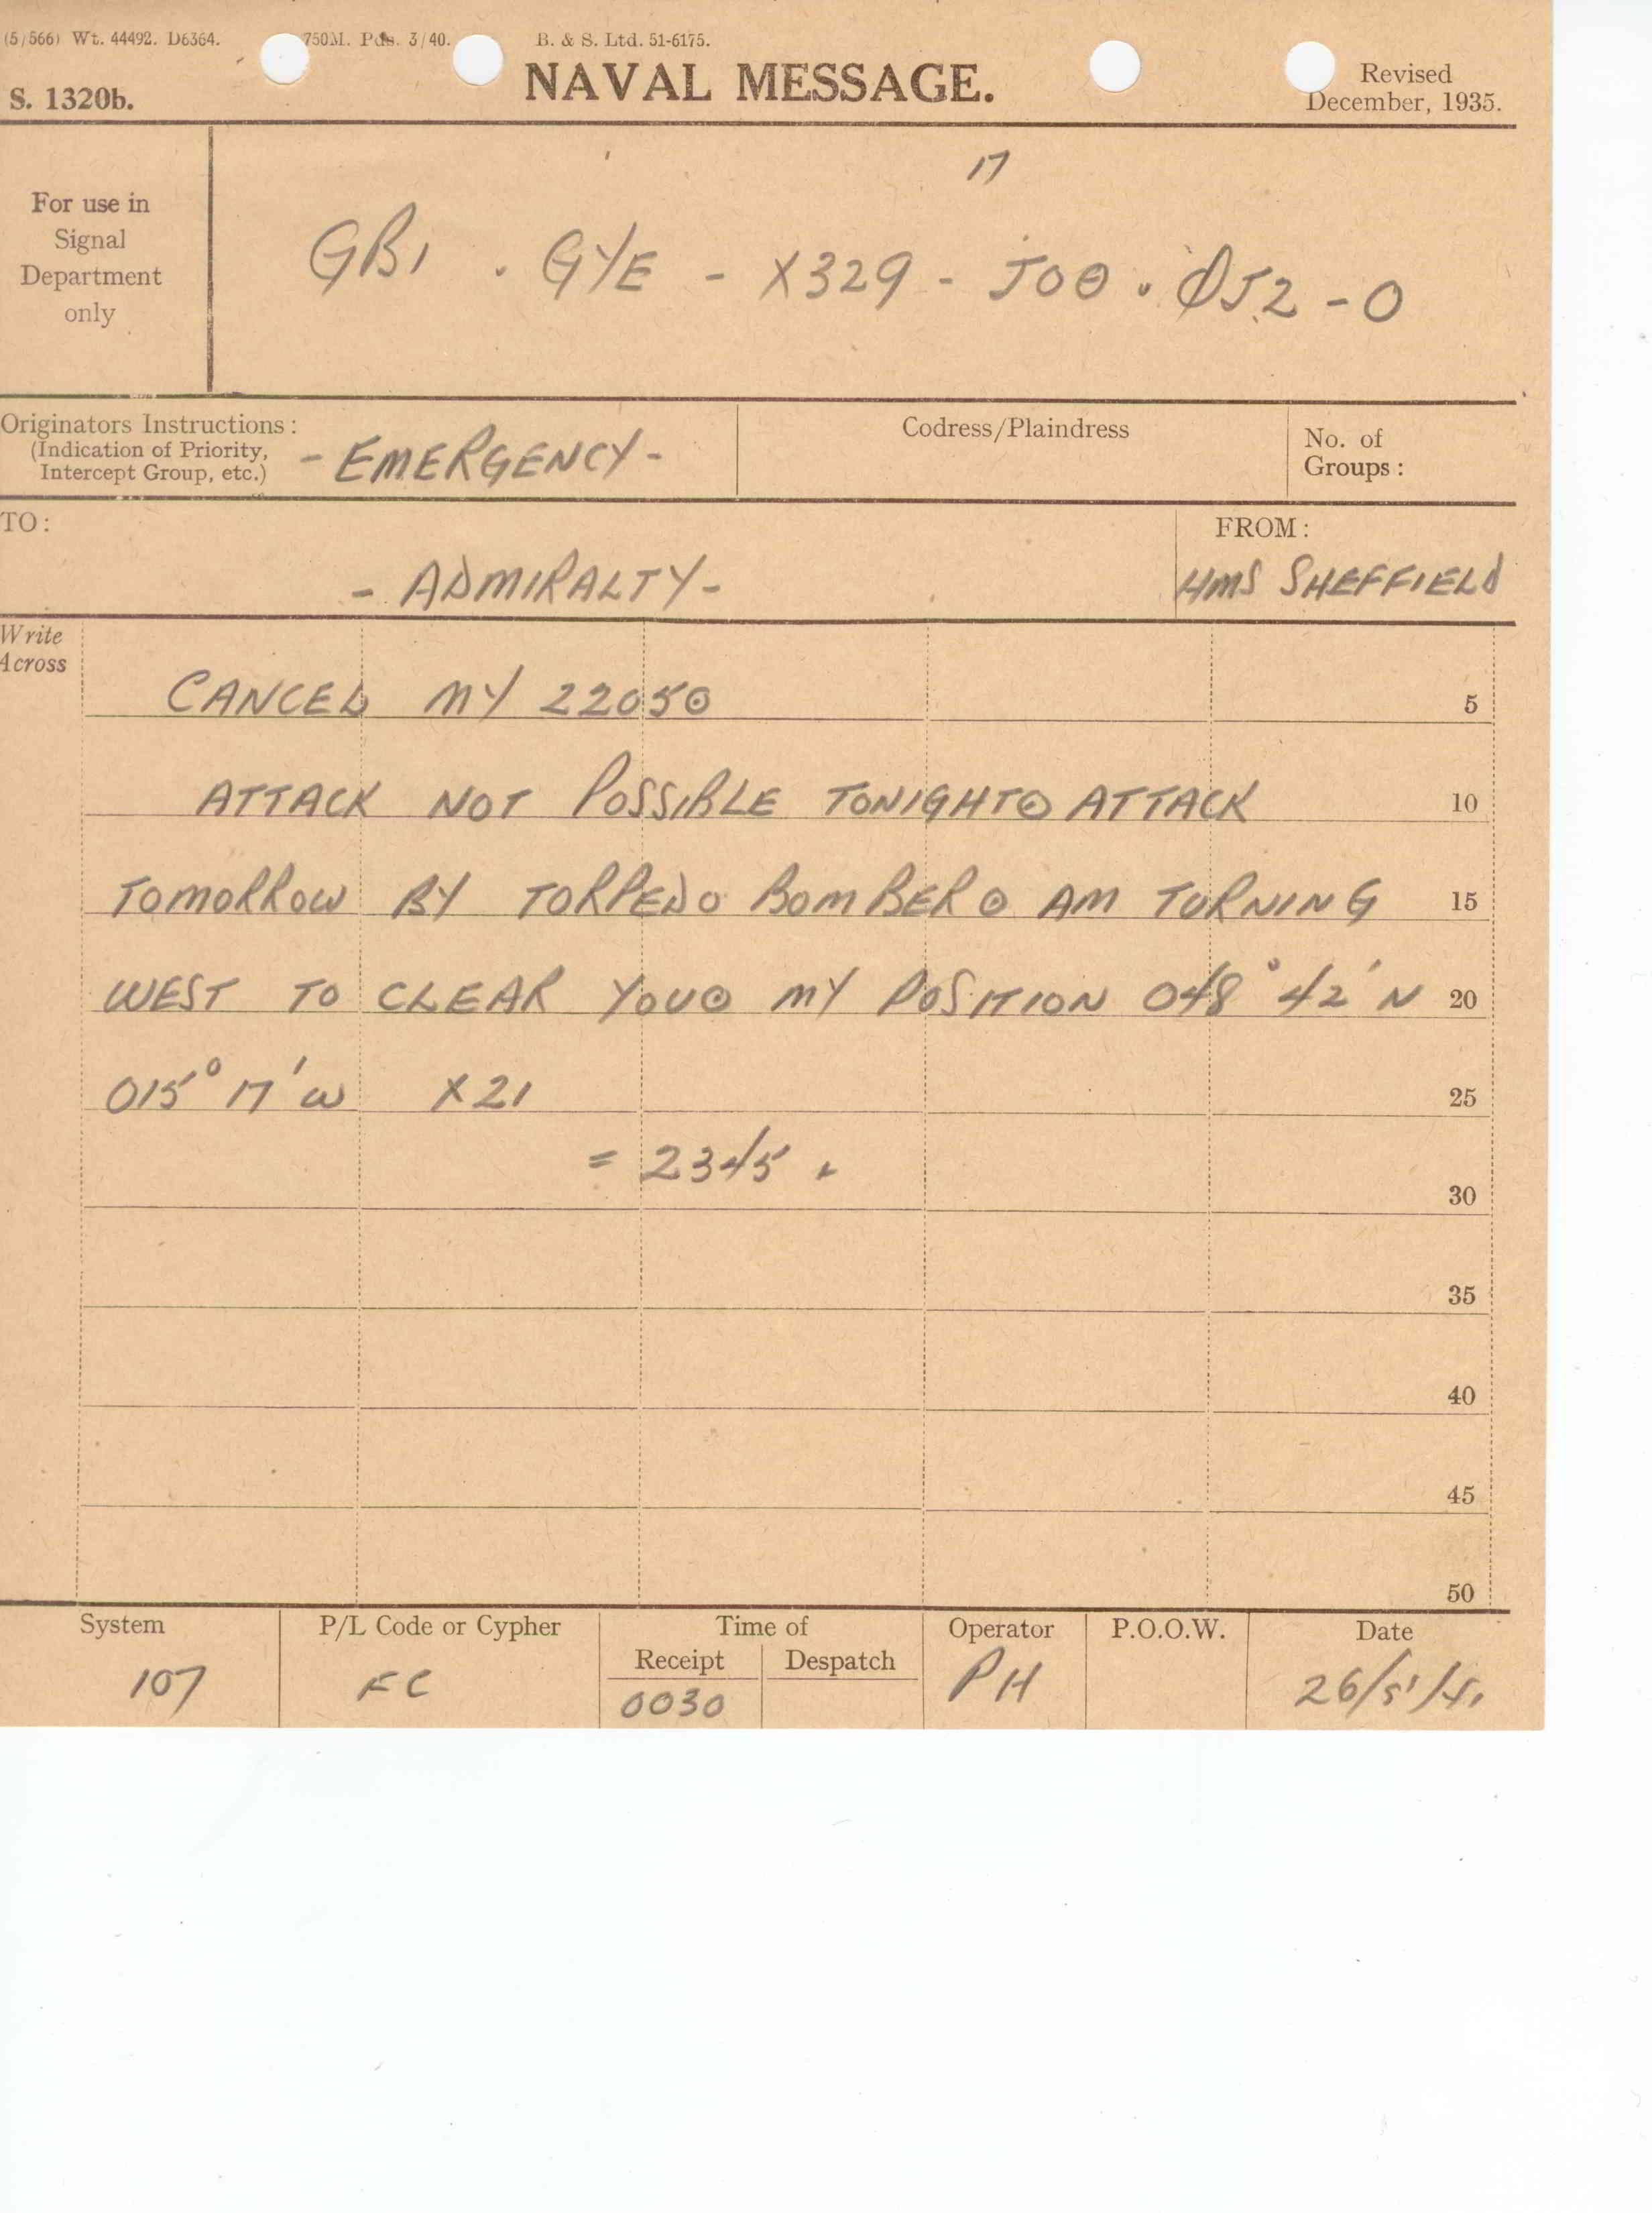 (5/566) Wt. 44492. D6364. 750M. Pds. 3/40. B. & S. Ltd. 51-6175.
S. 1320b.
NAVAL MESSAGE.
Revised
December, 1935.
For use in
Signal
Department
only
17
GB1 . GYE - X329 - J00 . 0J2 - O
Originators Instructions:
(Indication of Priority,
Intercept Group, etc.)
- EMERGENCY -
Codress/Plaindress
No. of
Groups:
TO:
- ADMIRALTY -
FROM:
HMS SHEFFIELD
Write
Across
CANCEL MY 2205⊙ 5
ATTACK NOT POSSIBLE TONIGHT⊙ ATTACK 10
TOMORROW BY TORPEDO BOMBER ⊙ AM TURNING 15
WEST TO CLEAR YOU⊙ MY POSITION 048° 42' N 20
015° 17' W X21 25
= 2345 . 30
35
40
45
50
System
P/L Code or Cypher
Time of
Receipt
Despatch
Operator
P.O.O.W.
Date
107
FC
0030
PH
26/5/41